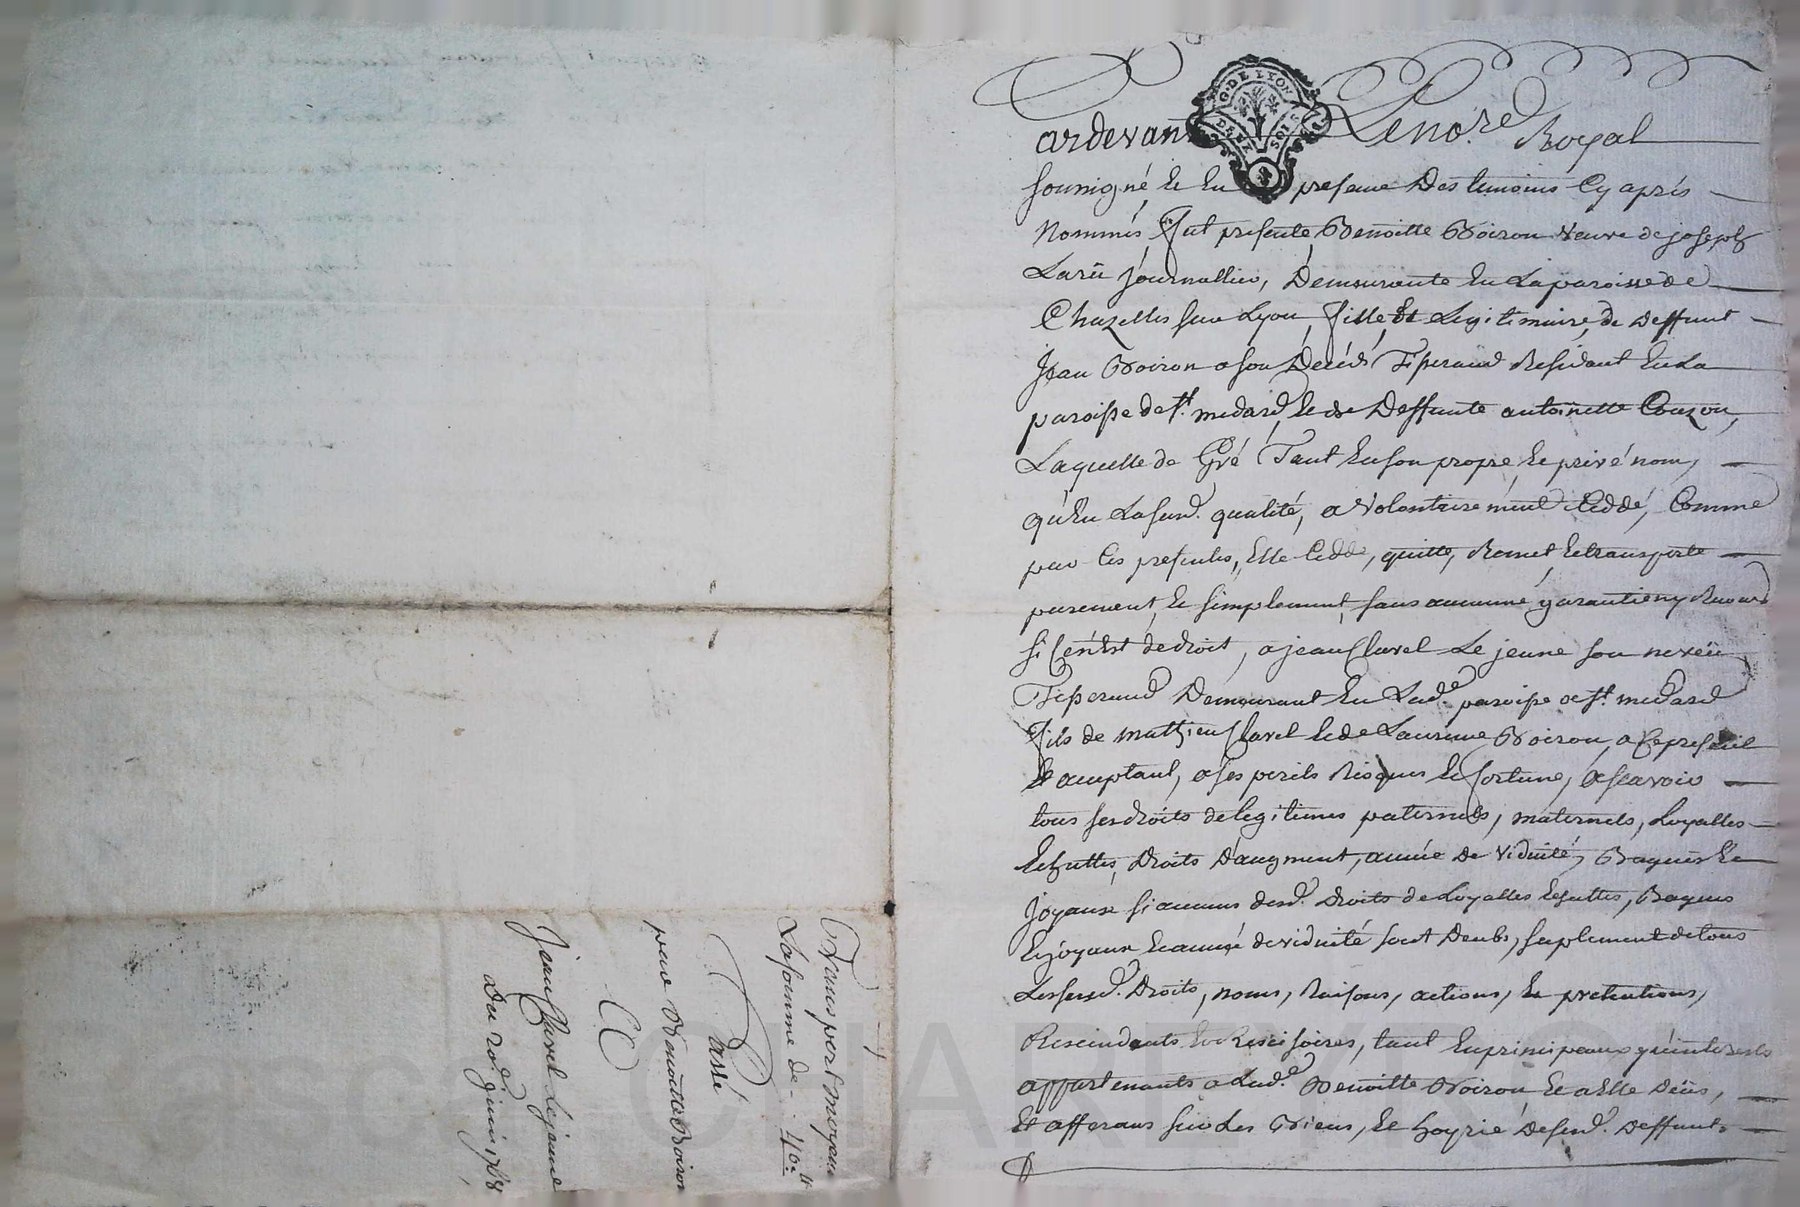 G. DE LYON
DEUX SOLS
ardevant Le no.re Royal
soussigné et en presence des temoins cy aprés
nommés fut presente Benoitte Boiron veuve de joseph
Larüe journallier, demeurante en la paroisse de
Chazelles sur Lyon, fille et legitimaire de deffunt
jean Boiron a son decéds Tisserand Residant en la
paroisse de st. medard, et de deffunte antoinette Couzon,
Laquelle de Gré Tant en son propre et privé nom,
qu'en La susd. qualité, a volontairement Ceddé, Comme
par Ces presentes, Elle Cedde, quitte, Remet et transporte
purement et simplement, sans aucune garantie ny
si Ce n'est de droit, a jean Clavel Le jeune son neveü
Tisserand Demeurant En Lad.e paroisse de st. medard
fils de mathieu Clavel et de Laurence Boiron, a Ce present
Et acceptant, a ses perils Risques et fortune, a scavoir
tous ses droits de legitimes paternels, maternels, Loyalles
Echuttes, droits d'augment, année de viduité, Bagues Et
joyaux si aucuns desd. droits de Loyalles Echuttes, Bagues
Et joyaux Et année de viduité sont deubs, suplement de tous
Les susd. droits, noms, raisons, actions, et pretentions,
Rescindants et Rescisoires, tant En principeaux qu'interests
appartenants a Lad.e Benoitte Boiron Et a Elle deüs,
Et afferans sur Les Biens, et hoyrie desd. deffunts
Transport moyenn
La somme de 40.tt
Passé
par Benoitte Boiron
a
jean Clavel Lejeune
Du 20.e juin 1768
CHARLYROI